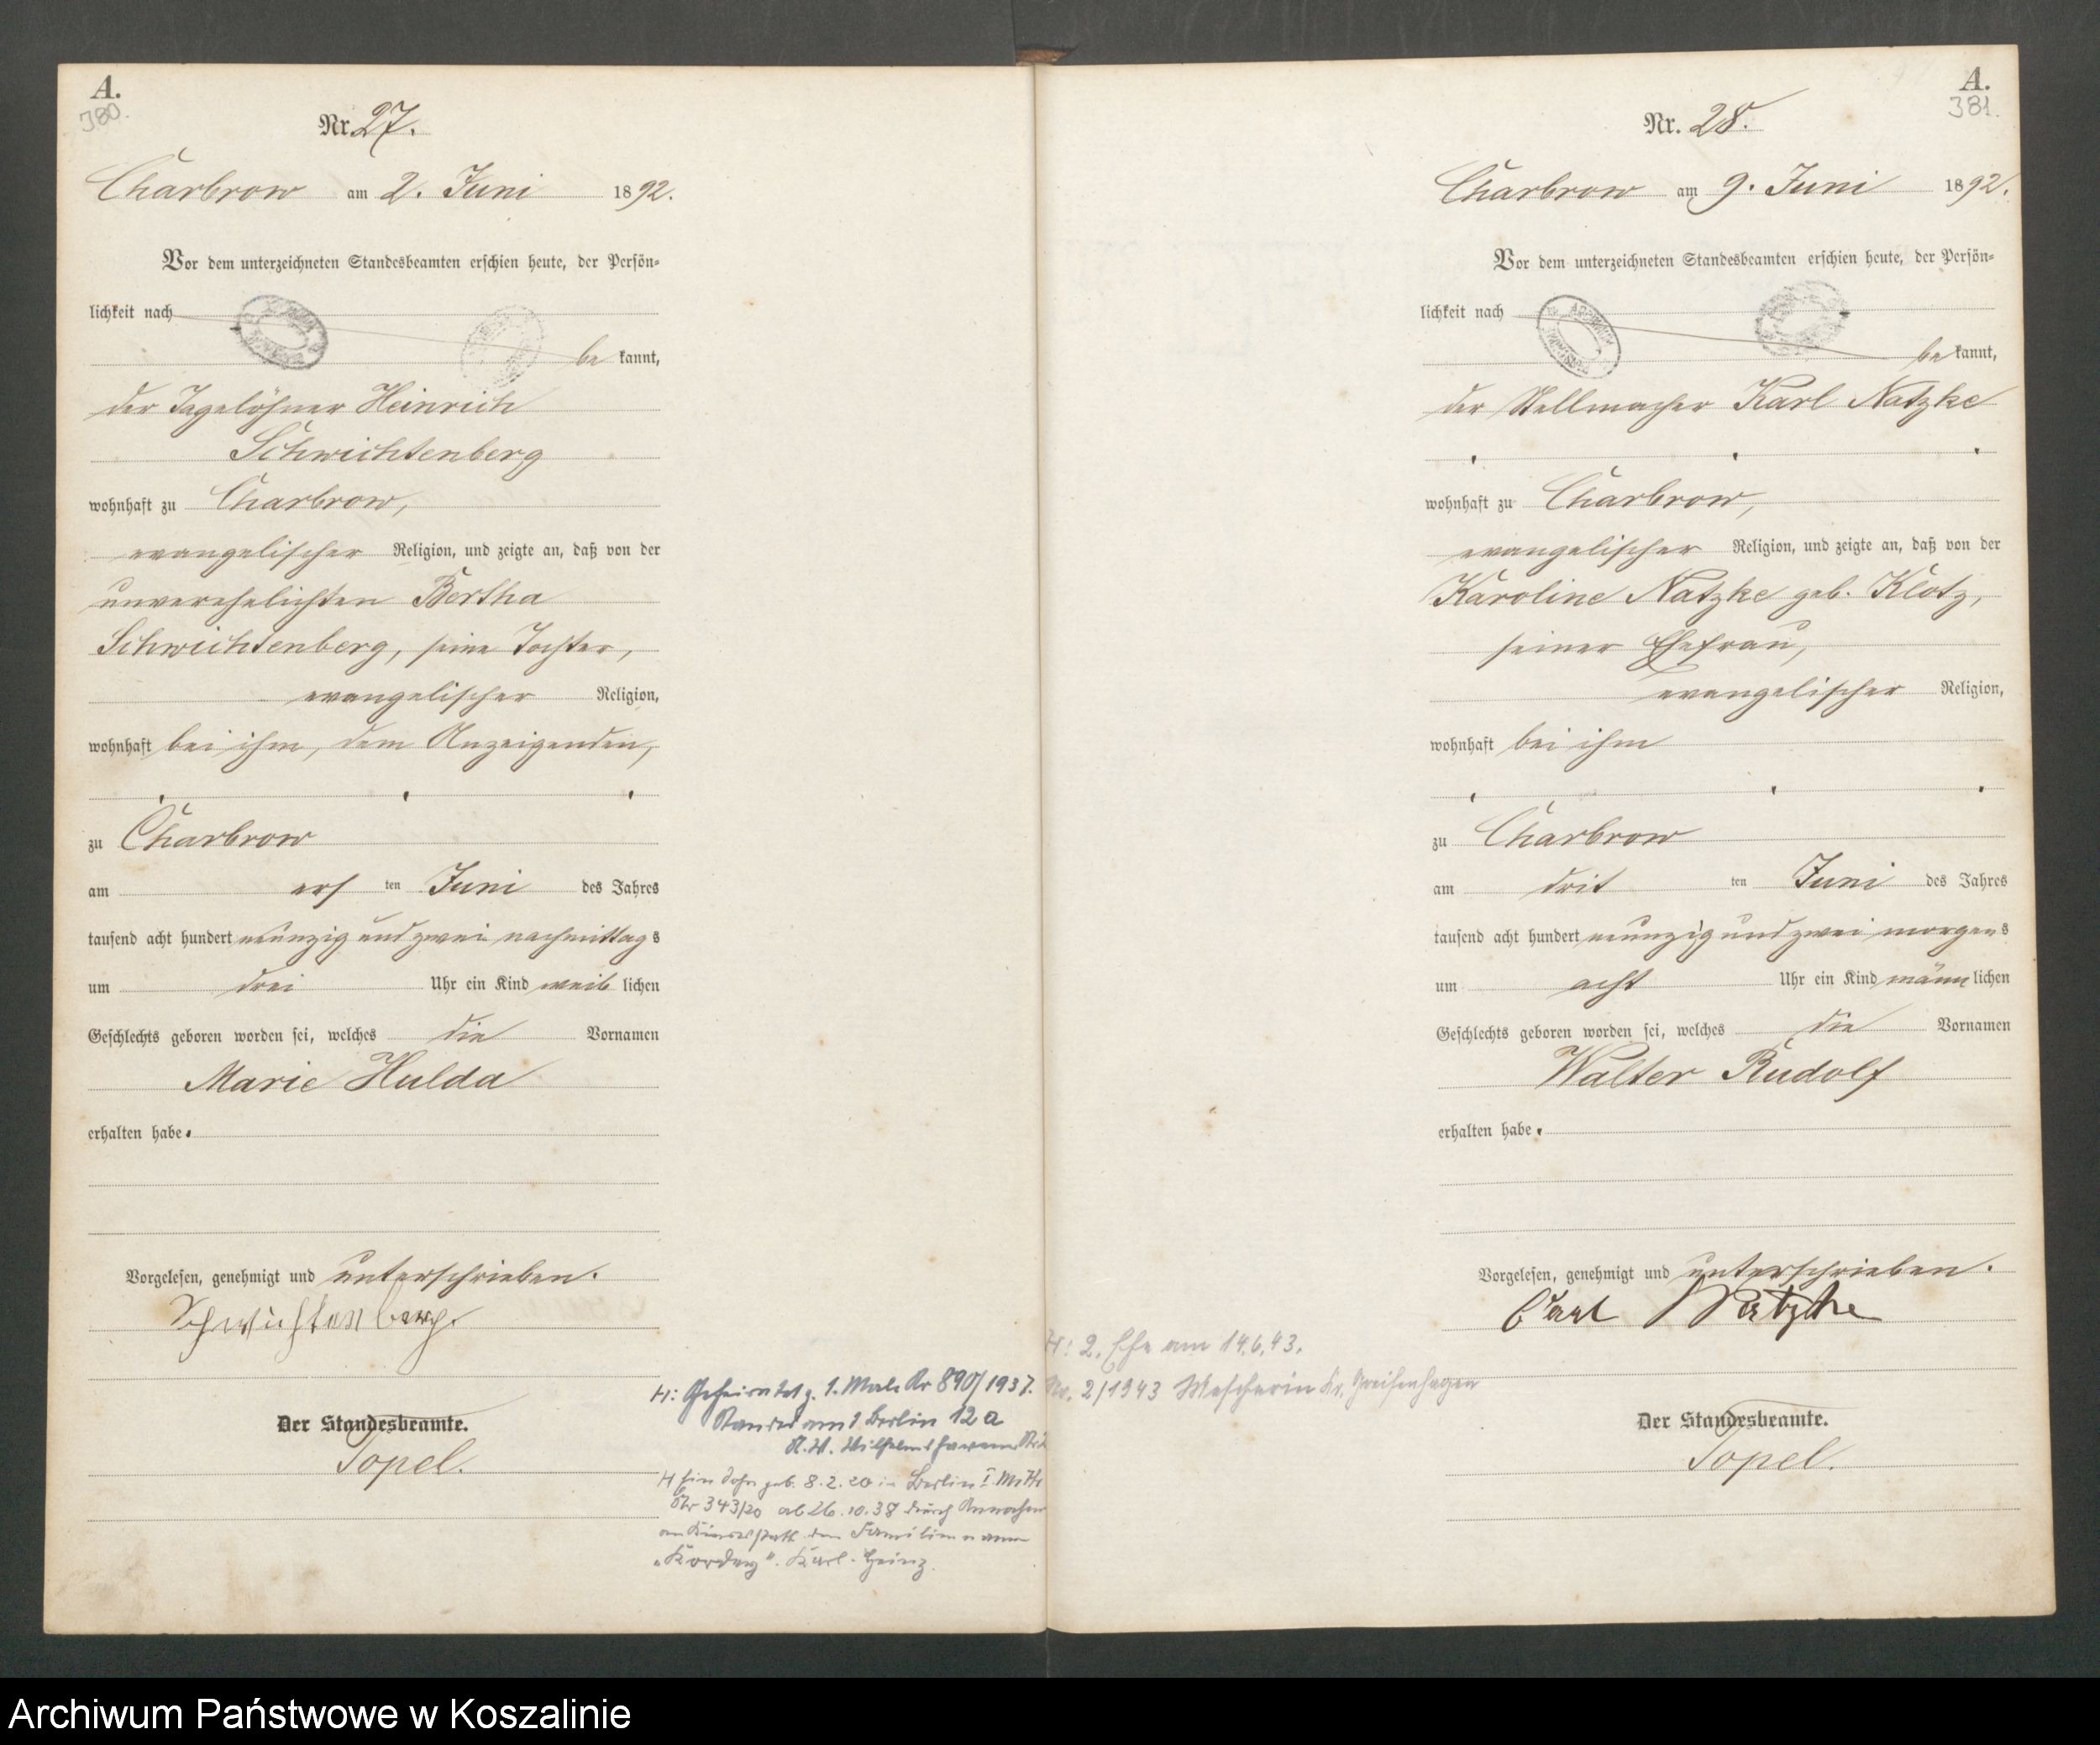 A.
380.
Nr. 27.
Charbrow am 2. Juni 1892.
Vor dem unterzeichneten Standesbeamten erschien heute, der Persön-
lichkeit nach
be kannt,
der Tagelöhner Heinrich
Schwichtenberg
wohnhaft zu Charbrow,
evangelischer Religion, und zeigte an, daß von der
unverehelichten Bertha
Schwichtenberg, seine Tochter,
evangelischer Religion,
wohnhaft bei ihm, dem Anzeigenden,
zu Charbrow
am ers ten Juni des Jahres
tausend acht hundert neunzig und zwei nachmittag s
um drei Uhr ein Kind weib lichen
Geschlechts geboren worden sei, welches die Vornamen
Marie Hulda
erhalten habe.
Vorgelesen, genehmigt und unterschrieben.
Schwichtenberg.
Der Standesbeamte.
Topel.
H: Geheiratet z. 1. Male Nr 890/1937.
Standesamt Berlin 12a
H sein Sohn geb. 8.2.20 in Berlin I Mitte
Nr 343/20 ab 26.10.38 durch Annahme
an Kindesstatt den Familiennamen
Karl-Heinz.
A.
381.
Nr. 28.
Charbrow am 9. Juni 1892.
Vor dem unterzeichneten Standesbeamten erschien heute, der Persön-
lichkeit nach
be kannt,
der Stellmacher Karl Natzke
wohnhaft zu Charbrow,
evangelischer Religion, und zeigte an, daß von der
Karoline Natzke geb. Klotz,
seiner Ehefrau,
evangelischer Religion,
wohnhaft bei ihm
zu Charbrow
am drit ten Juni des Jahres
tausend acht hundert neunzig und zwei morgen s
um acht Uhr ein Kind männ lichen
Geschlechts geboren worden sei, welches die Vornamen
Walter Rudolf
erhalten habe.
Vorgelesen, genehmigt und unterschrieben.
Carl Natzke
H: 2. Ehe am 14.6.43.
Nr. 2/1943 Mescherin Kr. Greifenhagen
Der Standesbeamte.
Topel.
Archiwum Państwowe w Koszalinie